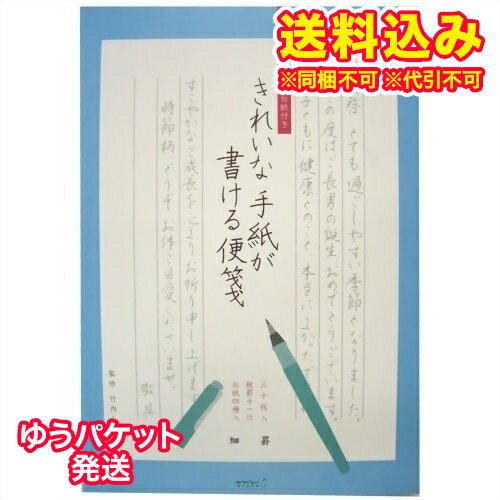 送料込み
※同梱不可 ※代引不可
台紙付き
きれいな手紙が
書ける便箋
とても過ごしやすい季節となりました。
の度はご長男の誕生、おめでとうございます。
子ともに健康とのこと、本当によかったで
すこやかなご成長を心よりお祈り申し上げます
時節柄、どうぞお体ご自愛くださいませ。
敬具
監修 竹内
三十枚入
縦罫十一行
台紙四種入
細罫
ゆうパケット
発送